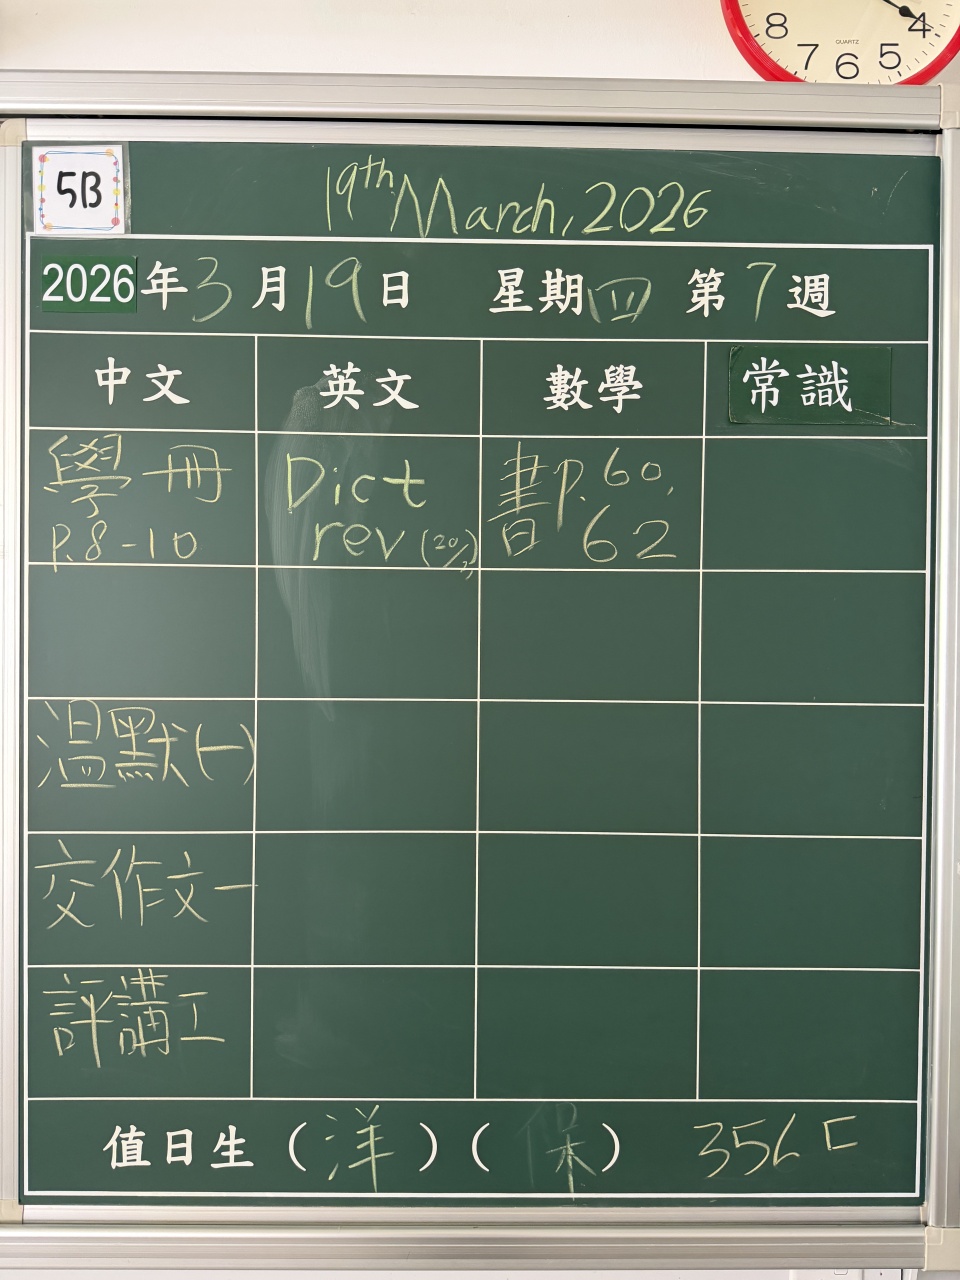 8 7 QUARTZ 6 5 4
5B
19th March, 2026
2026年3月19日 星期四 第7週
中文 英文 數學 常識
學冊 p.8-10
Dict rev (20/3)
書p.60, 62
溫默(一)
交作文一
評講工
值日生 (洋)(保)